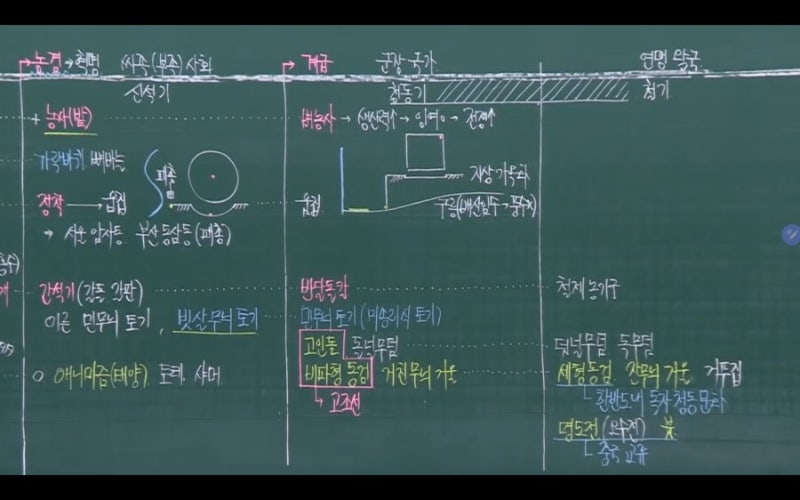 농경 → 혁명 씨족(부족)사회
계급 군장 국가
연맹 왕국
신석기
청동기
철기
+ 농사(밭)
벼농사 → 생산력↑ → 잉여o → 전쟁↑
가락바퀴 뼈바늘
패총
지상 가옥화
정착 → 움집
움집
구릉(배산임수 → 풍수x)
→ 서울 암사동 부산 동삼동(패총)
간석기(갈돌 갈판)
반달돌칼
철제 농기구
이른 민무늬 토기, 빗살무늬 토기
민무늬 토기(미송리식 토기)
고인돌 돌널무덤
덧널무덤 독무덤
o 애니미즘(태양) 토테 샤머
비파형 동검 거친무늬 거울
세형동검 잔무늬 거울 거푸집
→ 고조선
ㄴ한반도 내 독자 청동 문화
명도전(오수전) 붓
ㄴ중국 교류